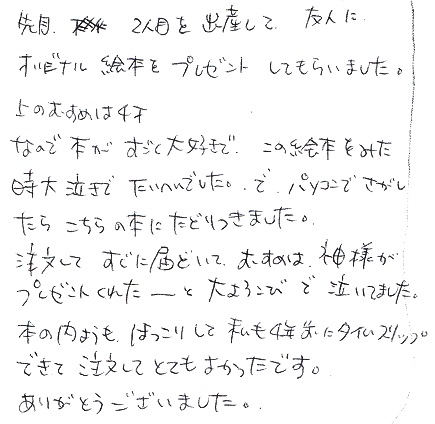 先月、 2人目を出産して、友人に
オリジナル絵本をプレゼントしてもらいました。
上のむすめは4才
なので本がすごく大好きで、この絵本をみた
時大泣きでたいへんでした。で、パソコンでさがし
たらこちらの本にたどりつきました。
注文してすぐに届いて、むすめは、神様が
プレゼントくれたーと大よろこびで泣いてました。
本の内ようも、ほっこりして私も4年前にタイムスリップ。
できて注文してとてもよかったです。
ありがとうございました。